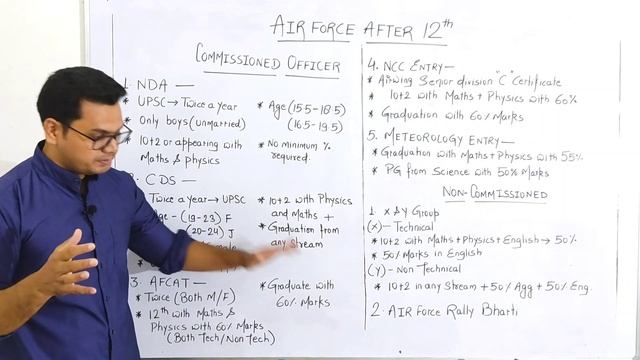 AIR FORCE AFTER 12th
COMMISSIONED OFFICER
1. NDA —
* UPSC → Twice a year
* Only boys (unmarried)
* 10+2 or appearing with
Maths & physics
* Age (15.5-18.5)
(16.5-19.5)
* No minimum %
required.
2. CDS —
Twice a year → UPSC
Age - (19-23) F
(20-24) J
* 10+2 with Physics
and Maths +
* Graduation from
any Stream
3. AFCAT —
* Twice (Both M/F)
* 12th with Maths &
Physics with 60% Marks
(Both Tech/Non Tech)
* Graduate with
60% Marks
4. NCC ENTRY —
* Airwing Senior division "C" Certificate
* 10+2 with Maths + Physics with 60%
* Graduation with 60% Marks
5. METEOROLOGY ENTRY —
* Graduation with Maths + Physics with 55%
* PG from Science with 50% Marks
NON-COMMISSIONED
1. X & Y Group
(X) - Technical
* 10+2 with Maths + Physics + English → 50%
* 50% Marks in English
(Y) - Non Technical
* 10+2 in any Stream + 50% Agg + 50% Eng.
2. AIR FORCE RALLY BHARTI